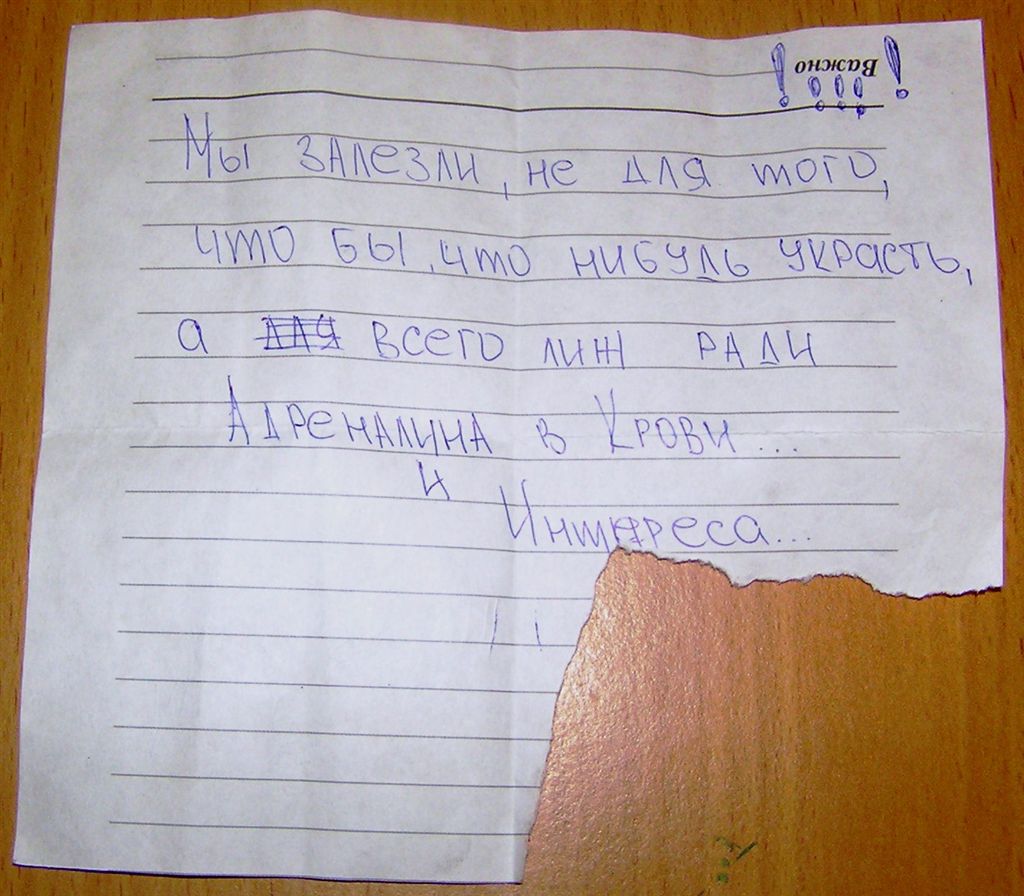 ! Важно !
!!!
Мы залезли, не для того,
что бы, что нибудь украсть,
а для всего лиж ради
Адреналина в Крови...
и
Интереса...